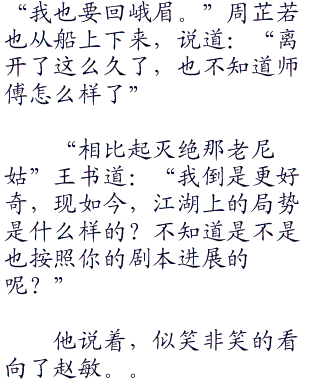 “我也要回峨眉。”周芷若
也从船上下来，说道：“离
开了这么久了，也不知道师
傅怎么样了”
“相比起灭绝那老尼
姑”王书道：“我倒是更好
奇，现如今，江湖上的局势
是什么样的？不知道是不是
也按照你的剧本进展的
呢？”
他说着，似笑非笑的看
向了赵敏。。